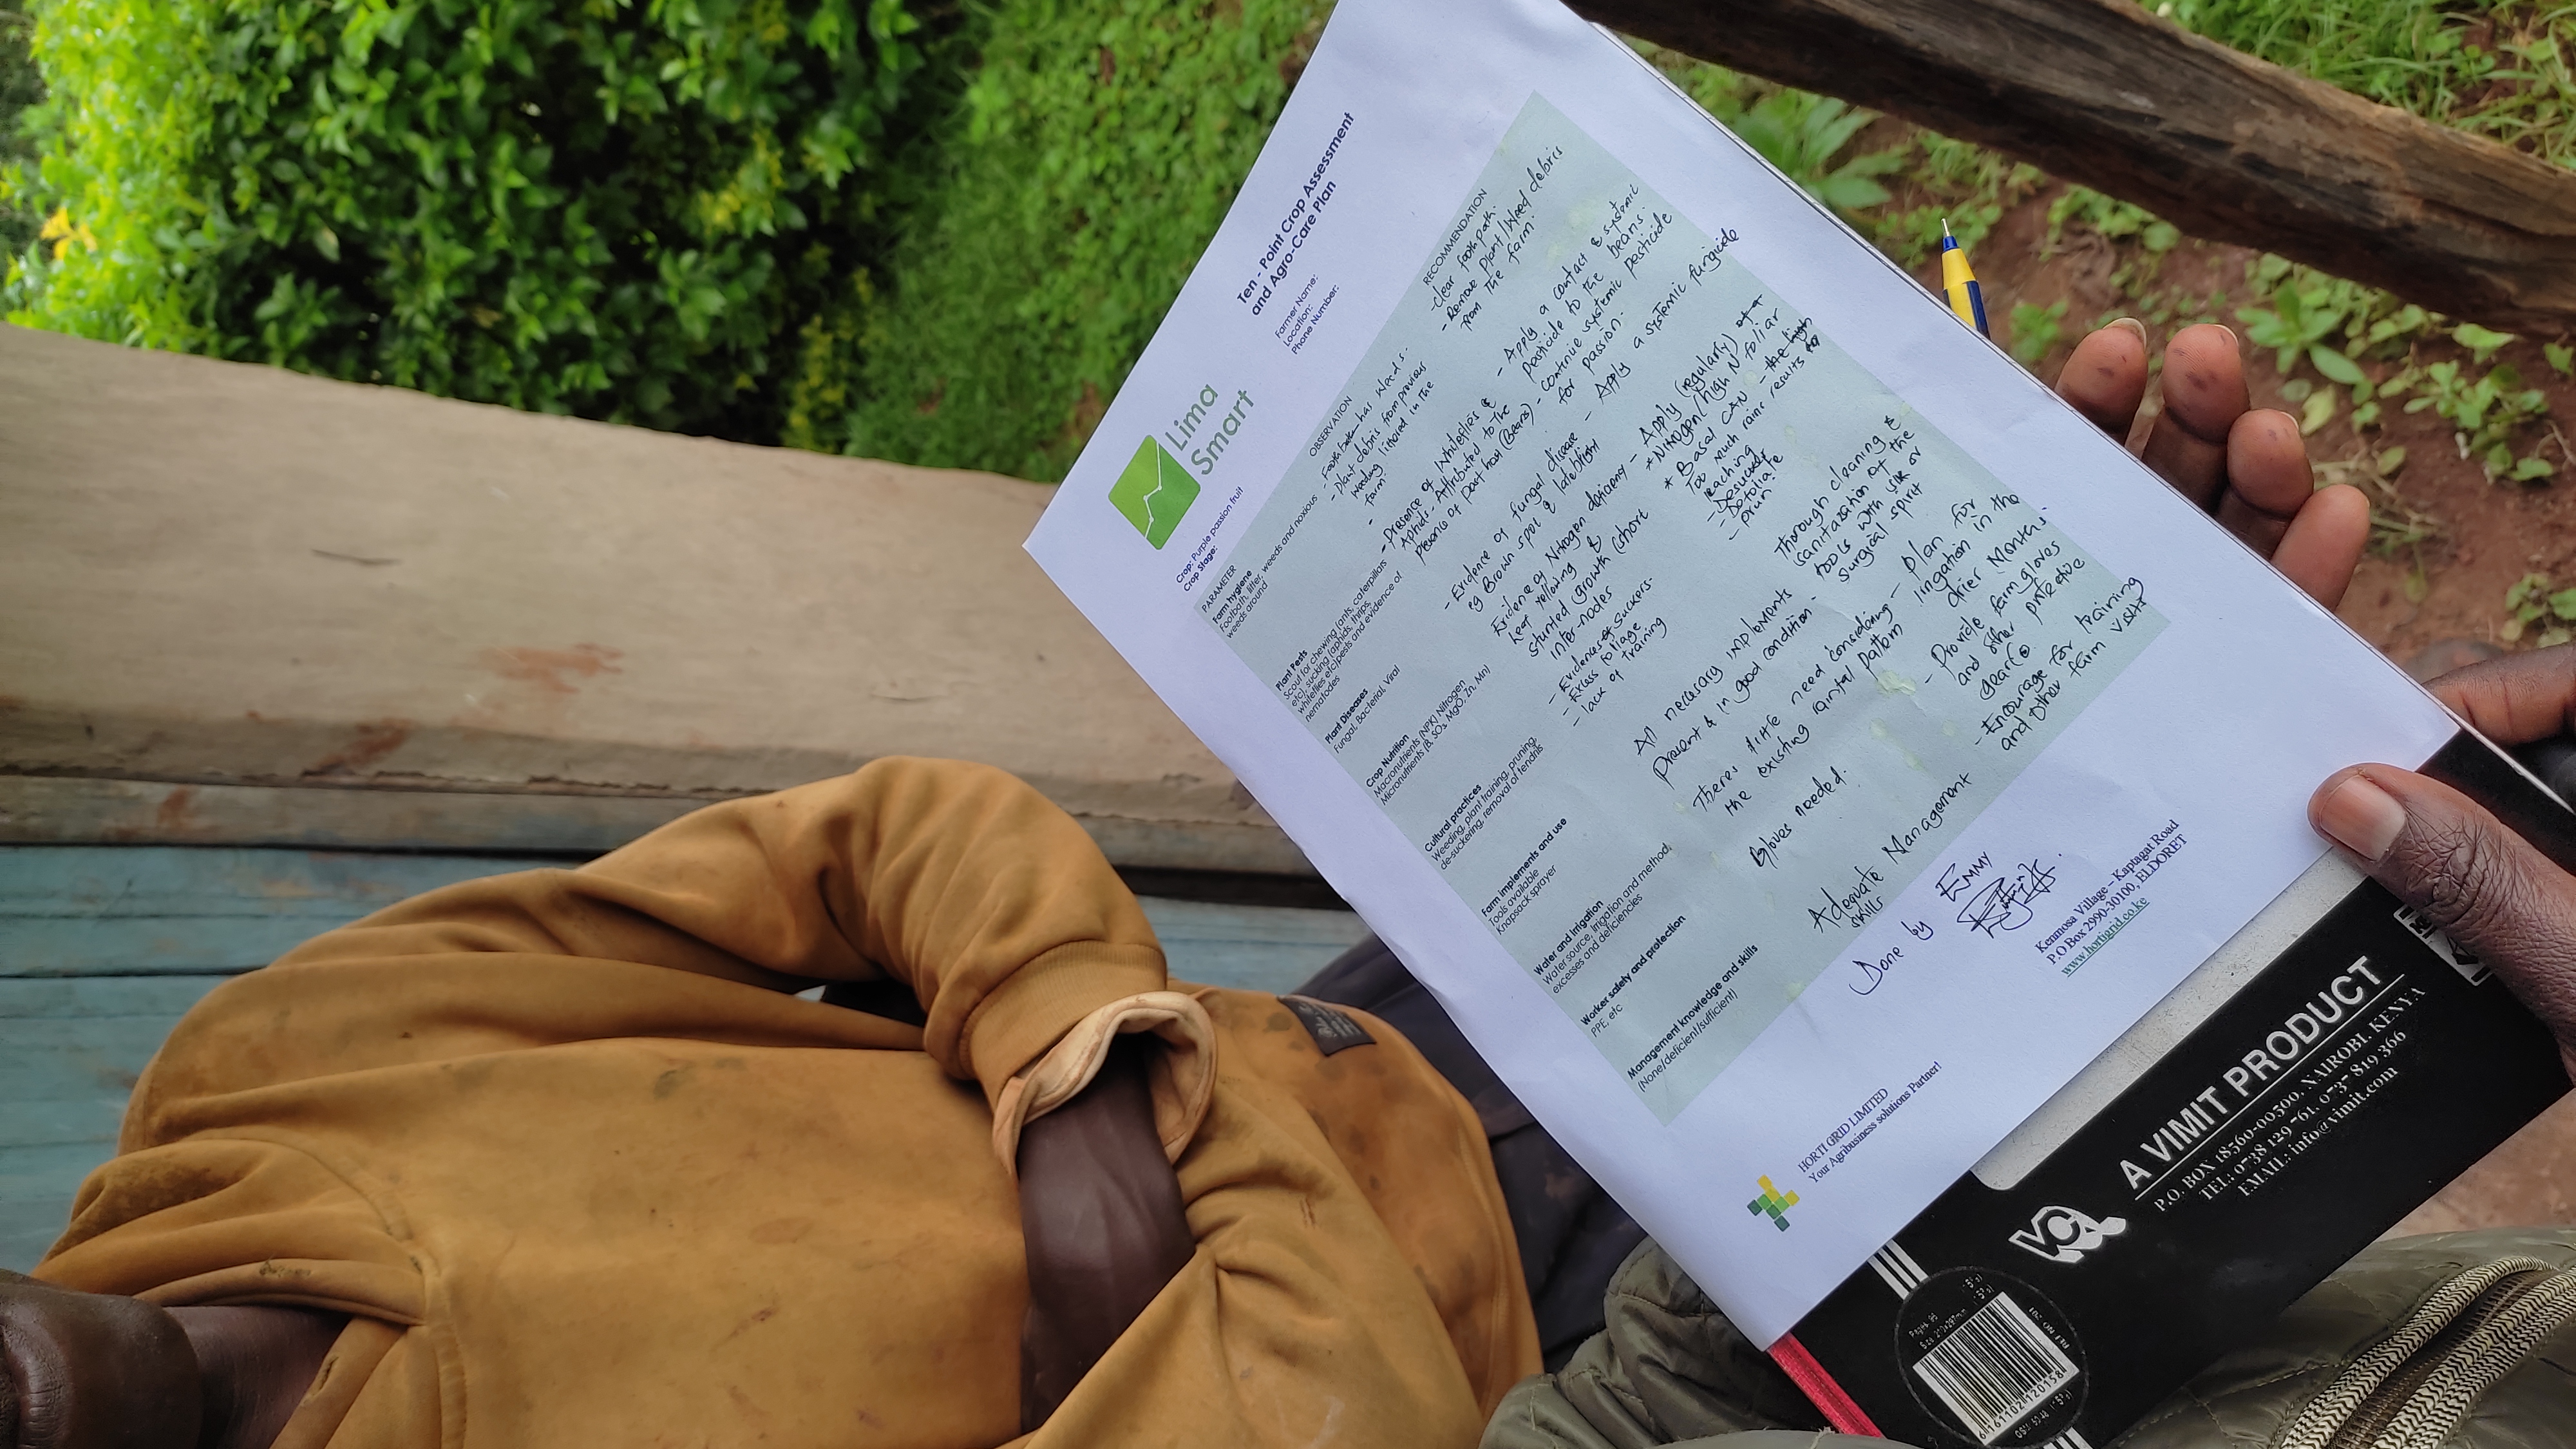 Lima
Smart
Ten - Point Crop Assessment
and Agro-Care Plan
Crop: Purple passion fruit
Crop Stage:
Farmer Name:
Location:
Phone Number:
PARAMETER
OBSERVATION
RECOMMENDATION
Farm hygiene
Footbath, litter, weeds and noxious
weeds around
- has weeds.
- Plant debris from previous
weeding littered in the
farm.
- Clear footpath.
- Remove Plant/Weed debris
from the farm.
Plant Pests
Scout for chewing (ants, caterpillars
etc), sucking (aphids, thrips,
whiteflies etc)pests and evidence of
nematodes
- Presence of Whiteflies &
Aphids - Attributed to the
presence of past host (Beans)
- Apply a contact & systemic
pesticide to the beans.
- Continue systemic pesticide
for passion.
Plant Diseases
Fungal, Bacterial, Viral
- Evidence of fungal disease
eg Brown spot & lateblight
- Apply a systemic fungicide
Crop Nutrition
Macronutrients (NPK) Nitrogen
Micronutrients (B, SO₄, MgO, Zn, Mn)
Evidence of Nitrogen deficiency
leaf yellowing &
stunted growth (short
inter-nodes
- Apply (regularly)
*Nitrogen/high N foliar
* Basal CAN - the high
Too much rains results to
leaching
Cultural practices
Weeding, plant training, pruning,
de-suckering, removal of tendrils
- Evidence of suckers.
- Excess foliage
- lack of training
- Desucker
- Defoliate
- prun
Farm implements and use
Tools available
Knapsack sprayer
All necessary implements
Present & in good condition -
Thorough cleaning &
Sanitazation of the
tools with or
surgical spirit
Water and irrigation
Water source, irrigation and method,
excesses and deficiencies
Theres little need considering
the existing rainfal pattern
- plan for
irrigation in the
drier Months.
Worker safety and protection
PPE etc
Gloves needed.
- Provide farm gloves
and other protective
gear(s)
Management knowledge and skills
(None/deficient/sufficient)
Adequate Management
skills
- Encourage for training
and other farm visits
Done by EMMY
HORTI GRID LIMITED
Your Agribusiness solutions Partner!
Kenmosa Village – Kaptagat Road
P.O Box 2990-30100, ELDORET
www.hortigrid.co.ke
A VIMIT PRODUCT
P.O. BOX 18360-00500, NAIROBI, KENYA
EMAIL: info@vimit.com